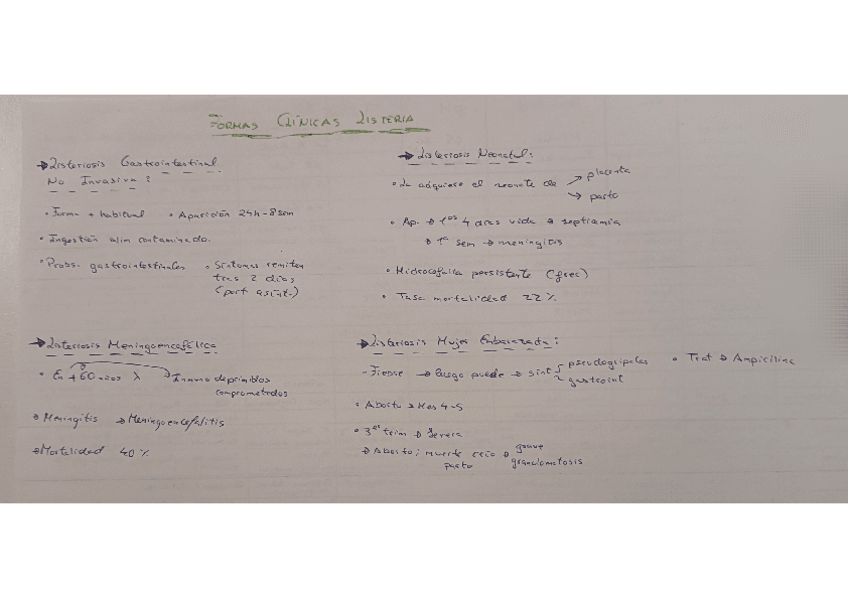 FORMAS CLÍNICAS LISTERIA
→ Listeriosis Gastrointestinal
No Invasiva:
• Forma + habitual • Aparición 24h-8sem
• Ingestión alim contaminado.
• Probs. gastrointestinales • Síntomas remiten
tras 2 días
(port asint.)
→ Listeriosis Neonatal:
• La adquiere el neonato de → placenta
→ parto
• Ap. → 1os 4 días vida → septicemia
→ 1ª sem → meningitis
• Hidrocefalia persistente (frec)
• Tasa mortalidad 22%
→ Listeriosis Meningoencefálica
• En +60 años Inmunodeprimidos
comprometidos
→ Meningitis → Meningoencefalitis
→ Mortalidad 40%
→ Listeriosis Mujer Embarazada:
- Fiebre → luego puede → sint pseudogripales
gastroint
• Trat → Ampicilina
• Aborto → Mes 4-5
• 3er trim → Severa
→ Aborto; muerte → grave
parto granulomatosis